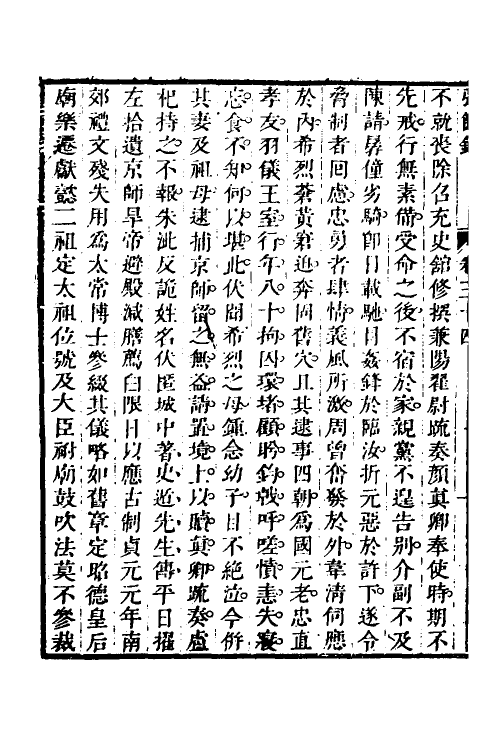 不就喪除召充史館修撰兼陽翟尉疏奏顏真卿奉使時期不
先戒行無素備受命之後不宿於家親黨不遑告別介副不及
陳請孱僮劣騎卽日載馳目姦鋒於臨汝折元惡於許下遂令
脅制者回慮忠勇者肆情義風所激周曾奮發於外韋清伺應
於內希烈蒼黃窘迫奔固舊穴且其逮事四朝為國元老忠直
孝友羽儀王室行年八十拘囚環堵顧盼鈞戟呼嗟憤恚失寢
忘食不知何以堪此伏聞希烈之母鍾念幼子目不絕泣今倂
其妻及祖母逮捕京師留之無益請置境上以贖真卿疏奏盧
杞持之不報朱泚反詭姓名伏匿城中著史遁先生傳平日擢
左拾遺京師旱帝避殿減膳薦臼限日以應古制貞元元年南
郊禮文殘失用為太常博士參綴其儀略如舊章定昭德皇后
廟樂遷獻懿二祖定太祖位號及大臣祔廟鼓吹法莫不參裁
卷三十四